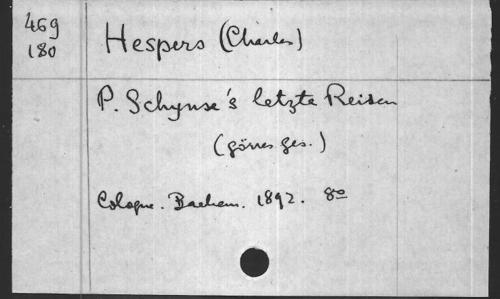 469
180
Hespers (Charles)
P. Schynse's letzte Reisen
(görres ges.)
Cologne. Bachem. 1892. 8º